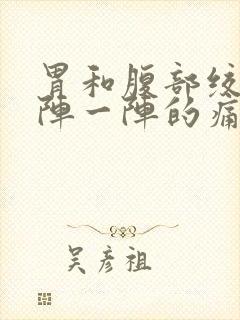 胃和腹部绞
陣一陣的痛
吴彦祖